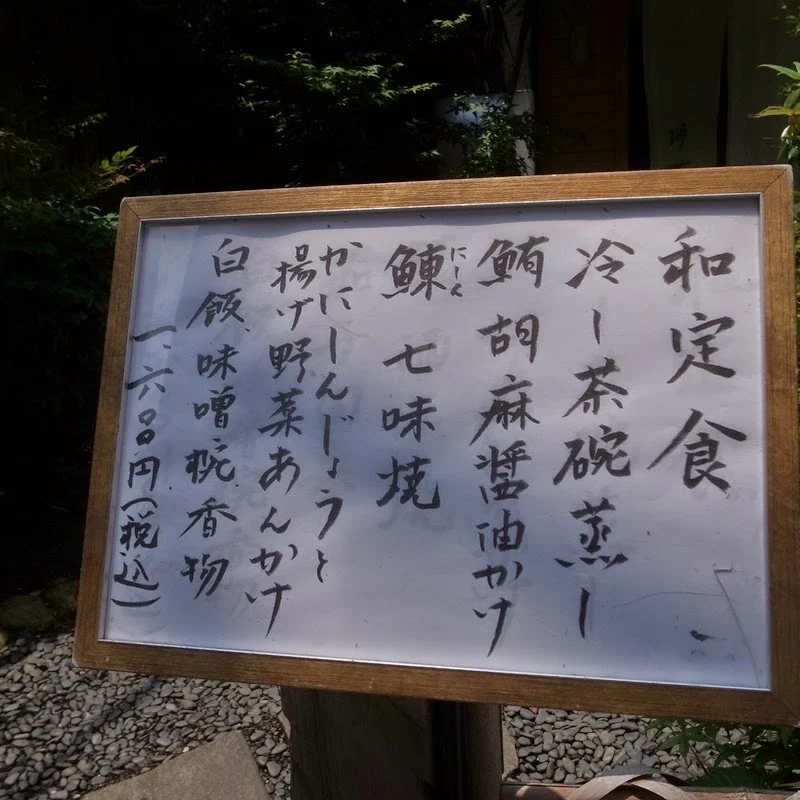 和定食
冷し茶碗蒸し
鮪胡麻醤油かけ
鰊 七味焼
にしん
かにしんじょうと
揚げ野菜あんかけ
白飯、味噌椀、香物
一、六〇〇円(税込)